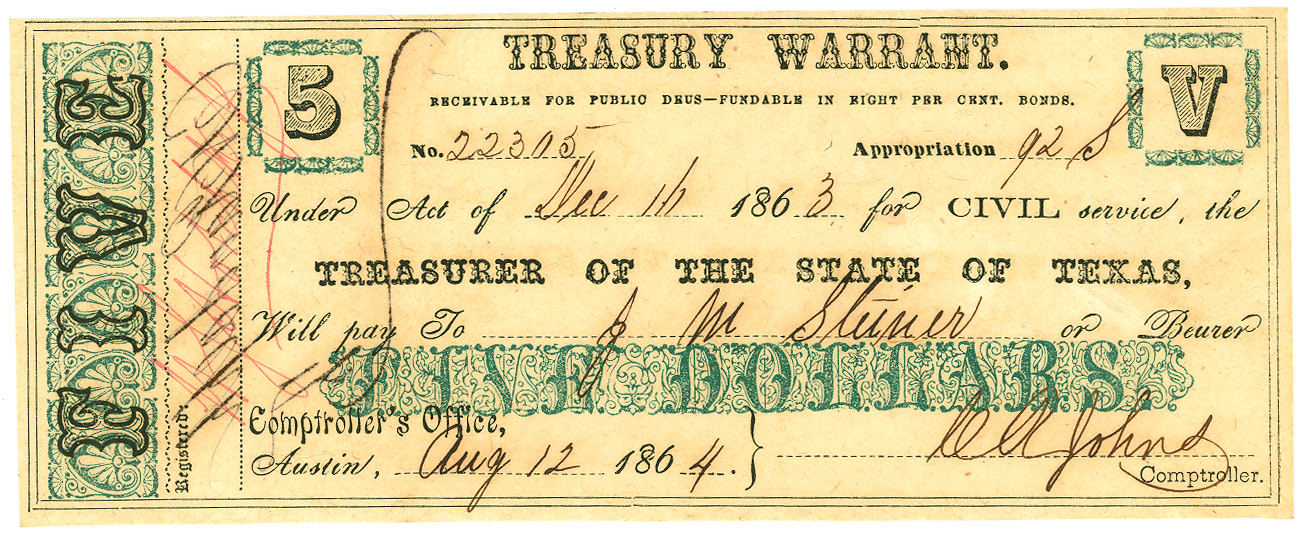 FIVE
5
TREASURY WARRANT.
V
RECEIVABLE FOR PUBLIC DEUS—FUNDABLE IN EIGHT PER CENT. BONDS.
No. 22305 Appropriation 92 S
Under Act of Dec 16 1863 for CIVIL service, the
TREASURER OF THE STATE OF TEXAS,
Will pay To J M Stüner or Bearer
FIVE DOLLARS.
Comptroller's Office,
Austin, Aug 12 1864.
C R Johns
Comptroller.
Registered